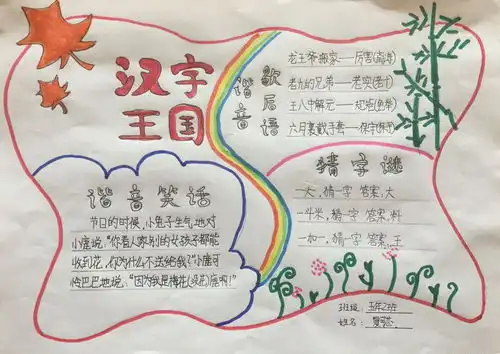 汉字
王国
谐音
歇后语
龙王爷搬家——厉害(离海)
老九的兄弟——老实(老十)
王八中解元——规矩(龟举)
六月裹戴手套——保守(保手)
谐音笑话
节日的时候,小兔子生气地对
小鹿说:“你看人家别的女孩子都能
收到花,你为什么不送给我?”小鹿可
怜巴巴地说:“因为我是梅花(没花)鹿啊!”
猜字谜
一大,猜一字 答案:大
一斗米,猜一字 答案:料
一加一,猜一字 答案:王
班级:五年2班
姓名: